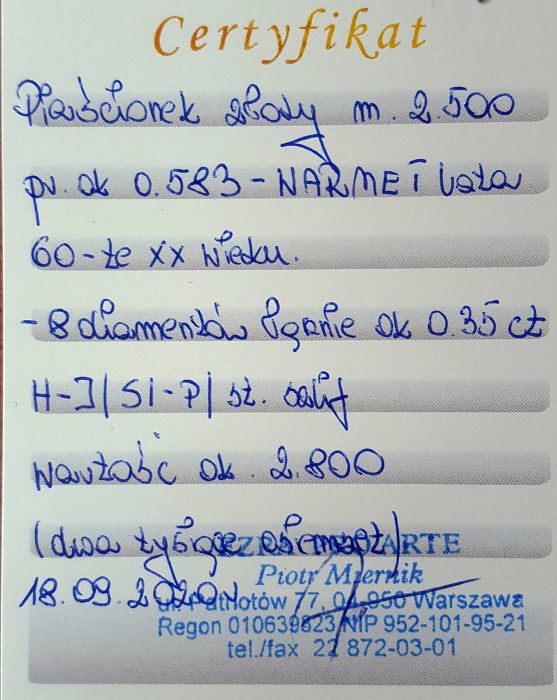 Certyfikat
Pierścionek złoty m. 2.500
pr. ok 0.583 - WARMET lata
60-te XX wieku.
- 8 diamentów łącznie ok 0.35 ct
H-J/SI-P/ sł. szlif
wartość ok. 2.800
(dwa tysiące osiemset)
18.09.2020r
ARTE
Piotr Miernik
ul. Patriotów 77, 04-950 Warszawa
Regon 010639823 NIP 952-101-95-21
tel./fax 22 872-03-01